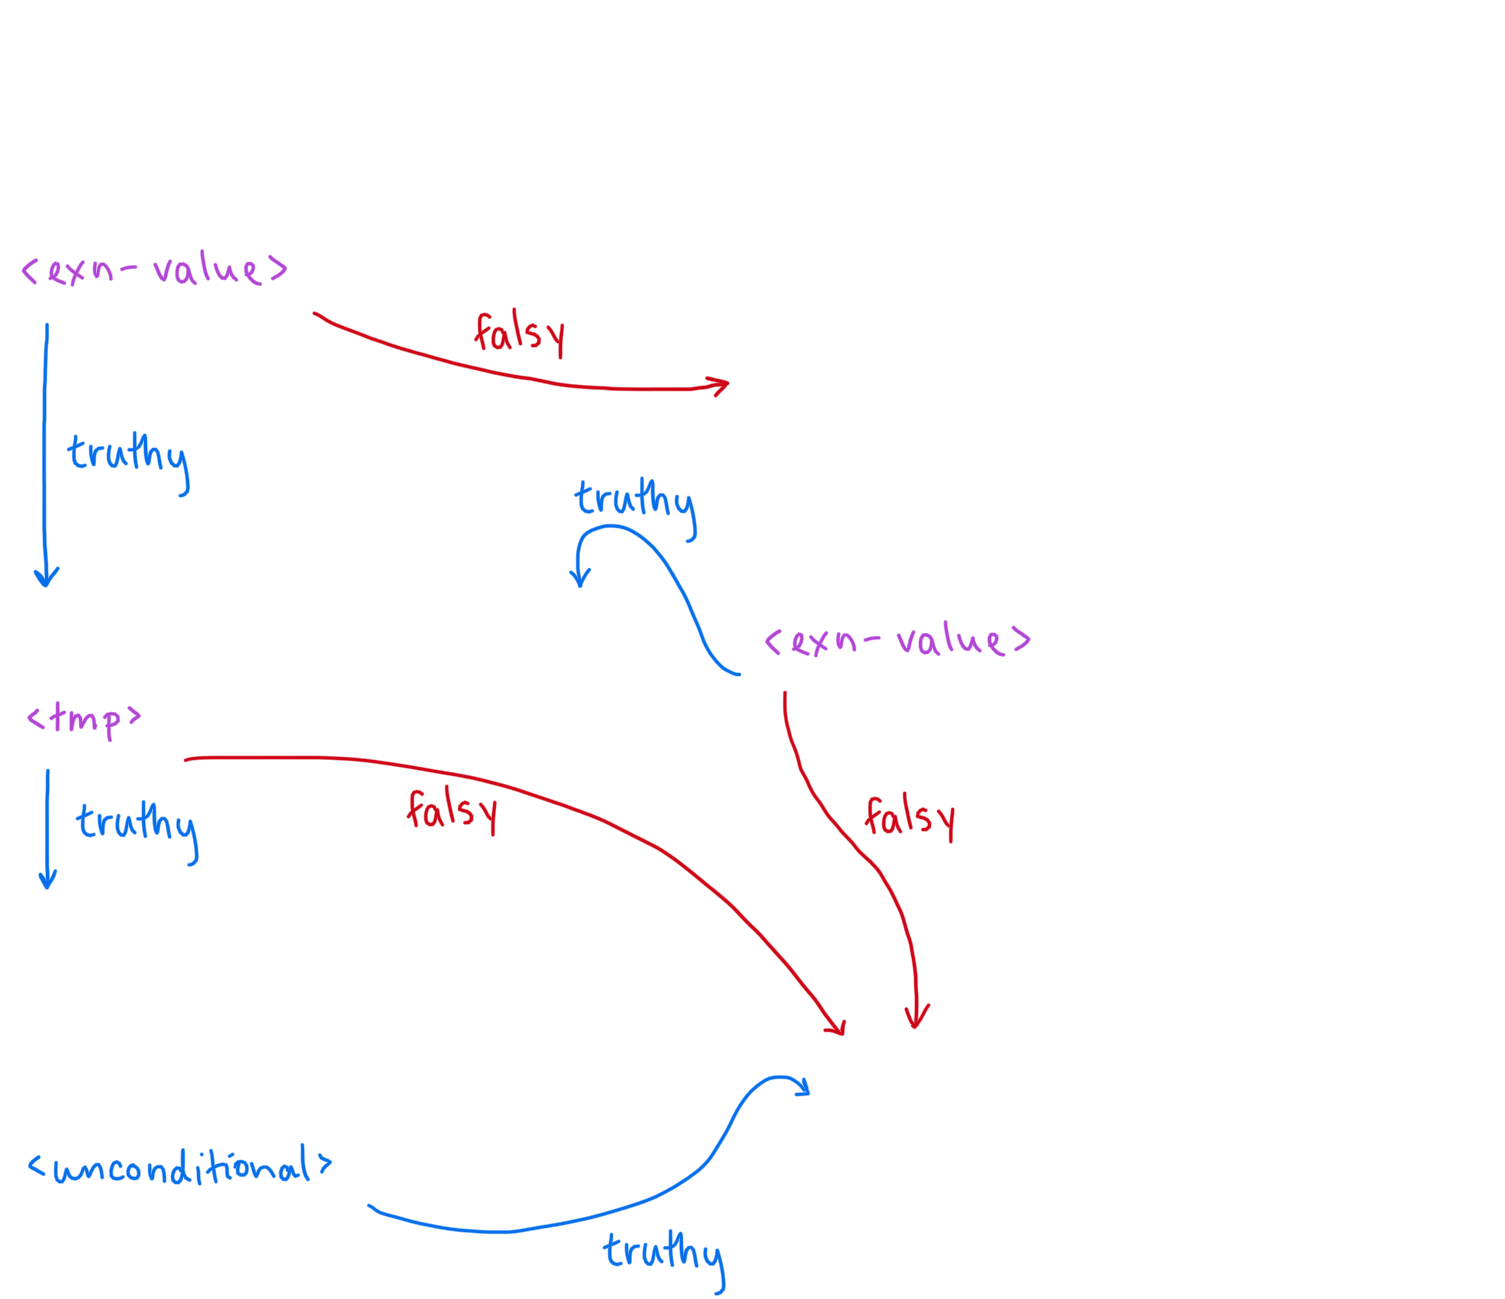 <exn-value>
falsy
truthy
truthy
<exn-value>
<tmp>
truthy
falsy
falsy
<unconditional>
truthy